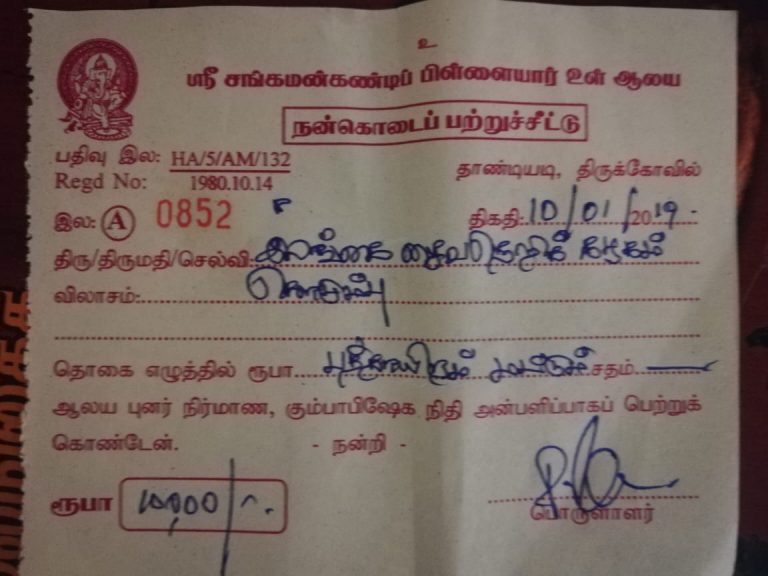 உ
ஸ்ரீ சங்கமன்கண்டிப் பிள்ளையார் உள் ஆலய
நன்கொடைப் பற்றுச்சீட்டு
பதிவு இல: HA/5/AM/132
Regd No: 1980.10.14
தாண்டியடி, திருக்கோவில்
இல: A 0852
திகதி: 10/01/2019
திரு/திருமதி/செல்வி: இலங்கை சைவநெறிக் கழகம்
விலாசம்: கொழும்பு
தொகை எழுத்தில் ரூபா பத்தாயிரம் மட்டும் சதம்
ஆலய புனர் நிர்மாண, கும்பாபிஷேக நிதி அன்பளிப்பாகப் பெற்றுக்
கொண்டேன். - நன்றி -
ரூபா 10,000/-
பொருளாளர்